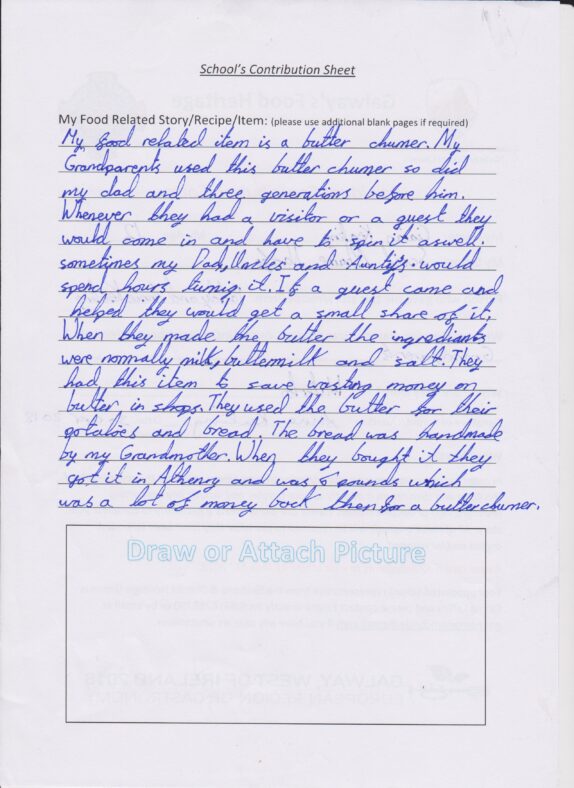 School's Contribution Sheet
My Food Related Story/Recipe/Item: (please use additional blank pages if required)
My food related item is a butter churner. My
Grandparents used this butter churner so did
my dad and three generations before him.
Whenever they had a visitor or a guest they
would come in and have to spin it aswell.
sometimes my Dad, Uncles and Aunty's would
spend hours turnig it. If a guest came and
helped they would get a small share of it.
When they made the butter the ingrediants
were normally milk, buttermilk and salt. They
had this item to save wasting money on
butter in shops. They used the butter for their
potatoes and bread. The bread was handmade
by my Grandmother. When they bought it they
got it in Athenry and was 5 pounds which
was a lot of money back then for a butter churner.
Draw or Attach Picture